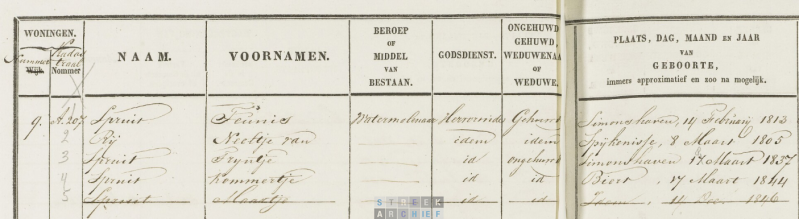 WONINGEN.
Nummer Wijk.
Kadastraal Nommer
NAAM.
VOORNAMEN.
BEROEP OF MIDDEL VAN BESTAAN.
GODSDIENST.
ONGEHUWD GEHUWD, WEDUWENAA OF WEDUWE.
PLAATS, DAG, MAAND EN JAAR VAN GEBOORTE,
immers approximatief en zoo na mogelijk.
1
9. A.207 Spruit Teunis Watermolenaar Hervormde Gehuwd Simonshaven, 14 February 1813
2 Rij Neeltje van idem idem Spijkenisse, 8 Maart 1805
3 Spruit Pryntje id ongehuwd Simonshaven 17 Maart 1837
4 Spruit Kommertje id id Biert, 17 Maart 1844
5 Spruit Maartje id id Idem, 11 Dec. 1846
STREEK
ARCHIEF